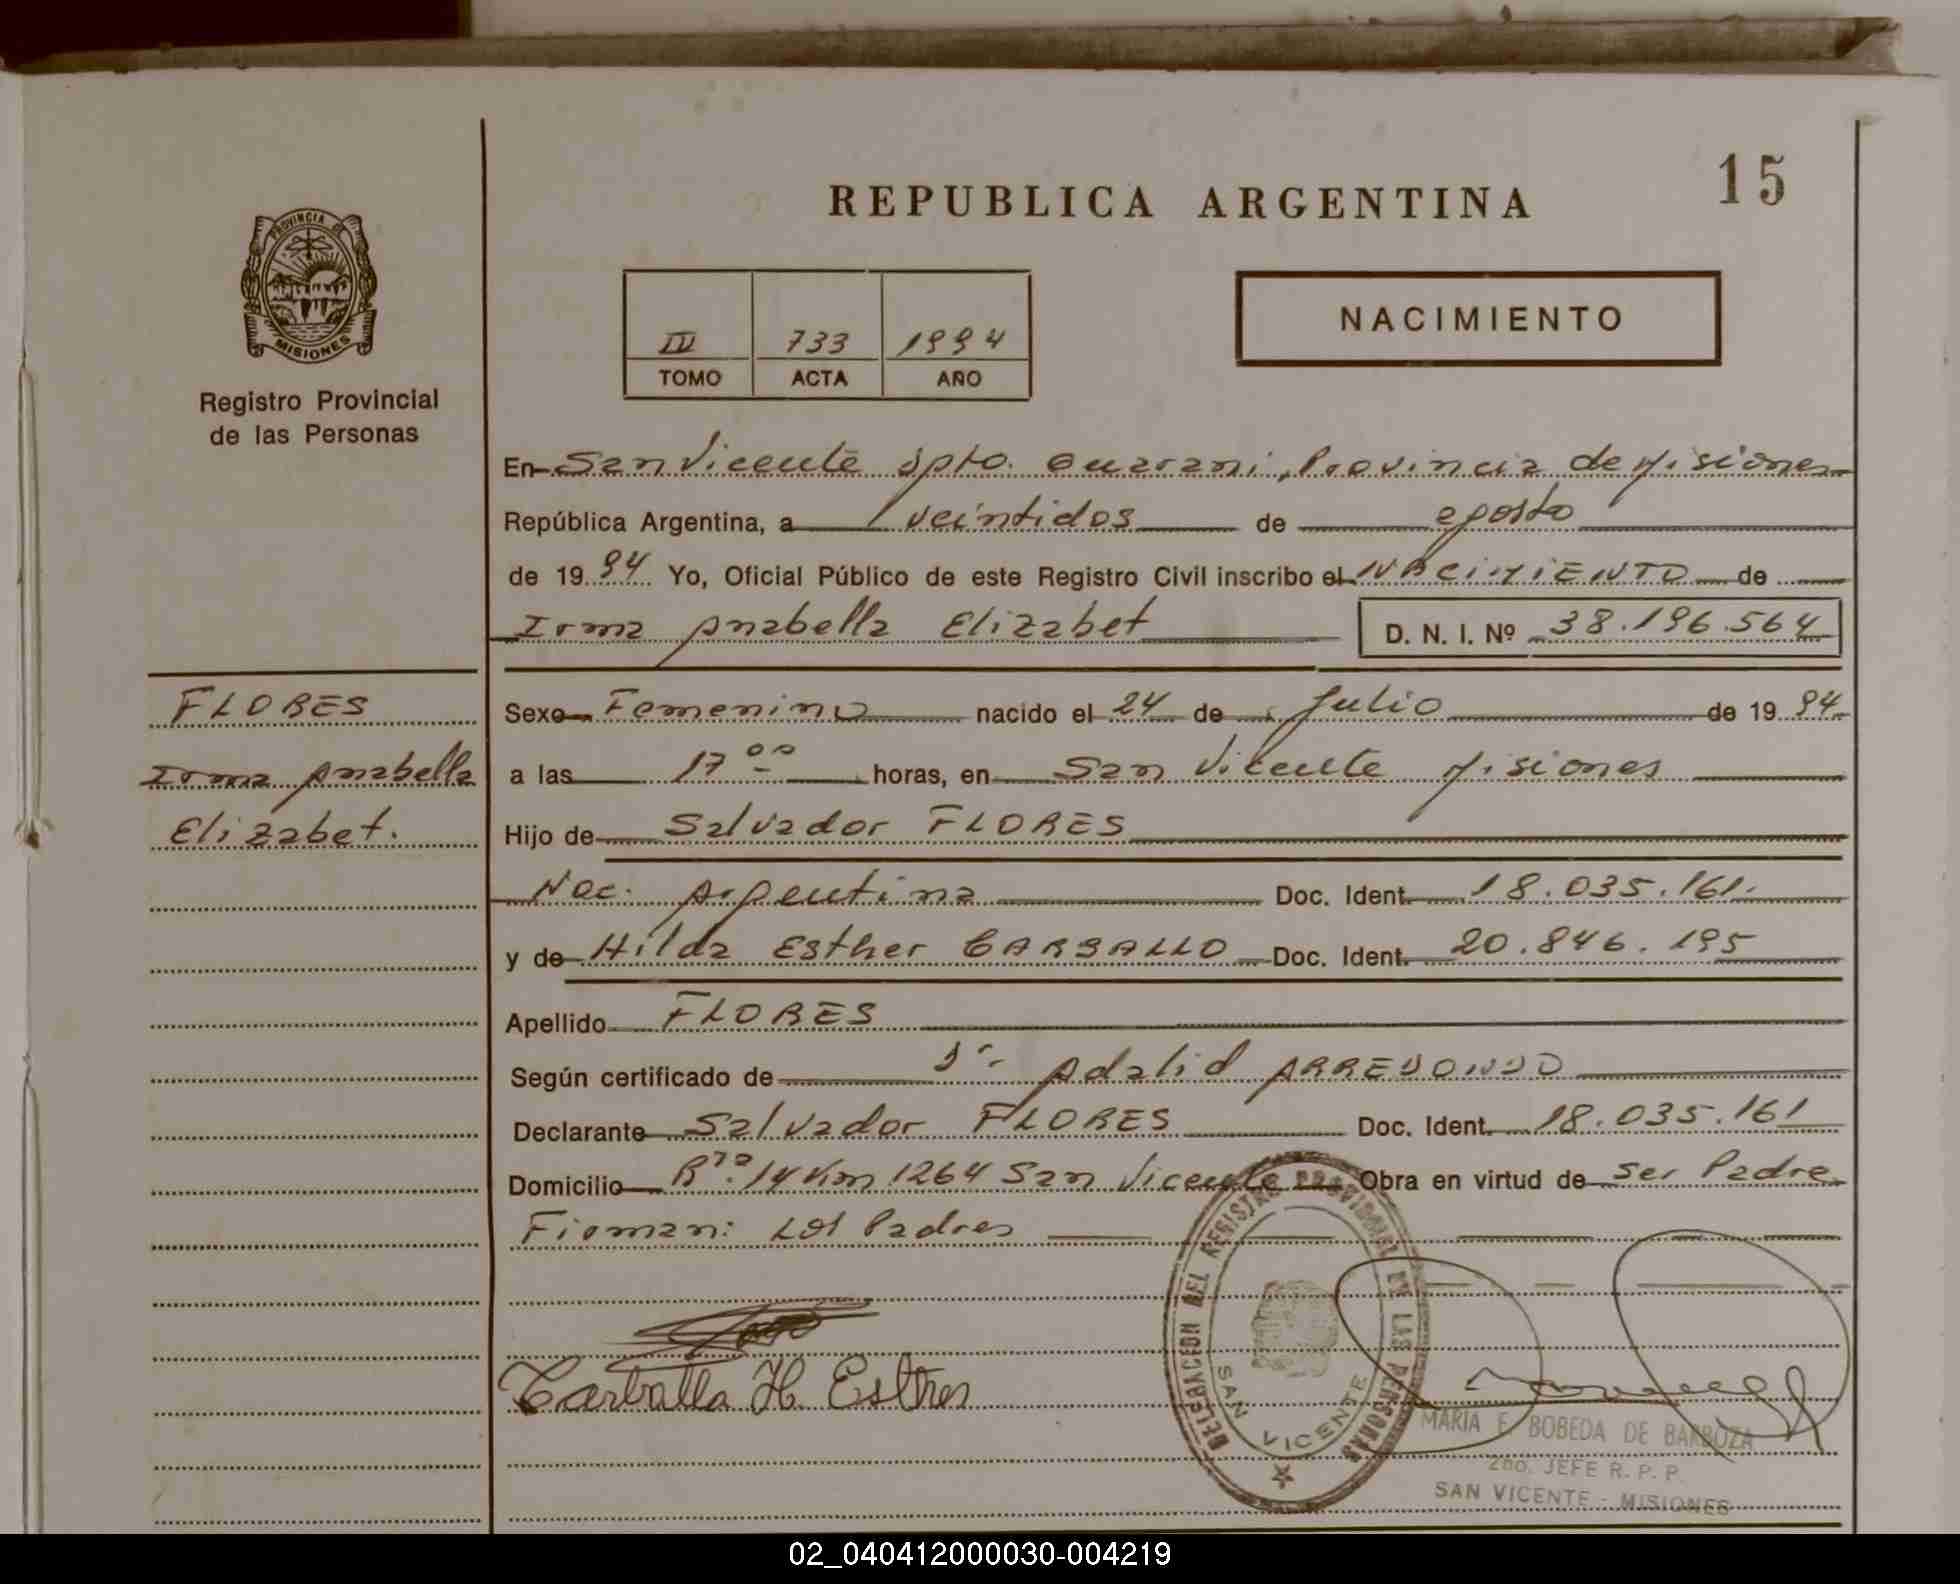 15
REPUBLICA ARGENTINA
PROVINCIA DE
MISIONES
Registro Provincial
de las Personas
III 733 1994
TOMO ACTA AÑO
NACIMIENTO
En San Vicente dpto. Guarani, Provincia de Misiones
República Argentina, a veintidos de agosto
de 19 94 Yo, Oficial Público de este Registro Civil inscribo el NACIMIENTO de
Irma Anabella Elizabet D. N. I. Nº 38.196.564
FLORES
Irma Anabella
Elizabet.
Sexo Femenino nacido el 24 de Julio de 19 94
a las 17 00 horas, en San Vicente Misiones
Hijo de Salvador FLORES
Nac. Argentina Doc. Ident. 18.035.161.
y de Hilda Esther CARBALLO Doc. Ident. 20.846.195
Apellido FLORES
Según certificado de Dr. Adalid ARREDONDO
Declarante Salvador FLORES Doc. Ident. 18.035.161
Domicilio Rta. 14 Km 1264 San Vicente Obra en virtud de ser Padre
Firman: Los Padres
Carballo H. Esther
DELEGACION DEL REGISTRO PROVINCIAL DE LAS PERSONAS
SAN VICENTE
MARIA E. BOBEDA DE BARBOZA
2do. JEFE R. P. P.
SAN VICENTE - MISIONES
02_040412000030-004219